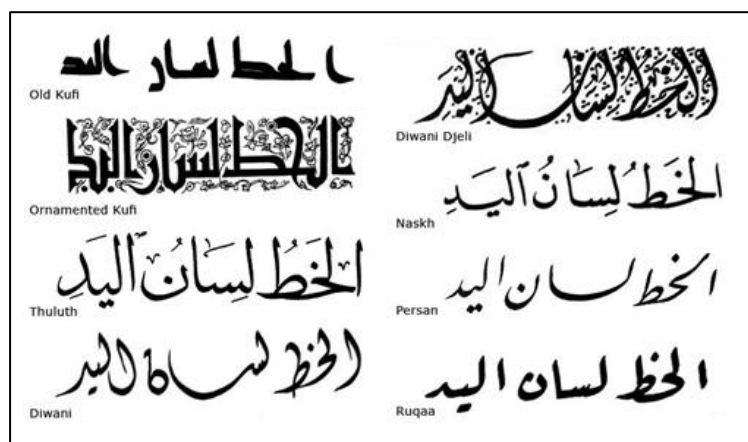 الخط لسان اليد
Old Kufi
الخط لسان اليد
Ornamented Kufi
الخَطُ لِسَانُ اَليَدِ
Thuluth
الخط لسان اليد
Diwani
الخط لسان اليد
Diwani Djeli
الخَطُ لِسَانُ اَليَدِ
Naskh
الخط لسان اليد
Persan
الخط لسان اليد
Ruqaa